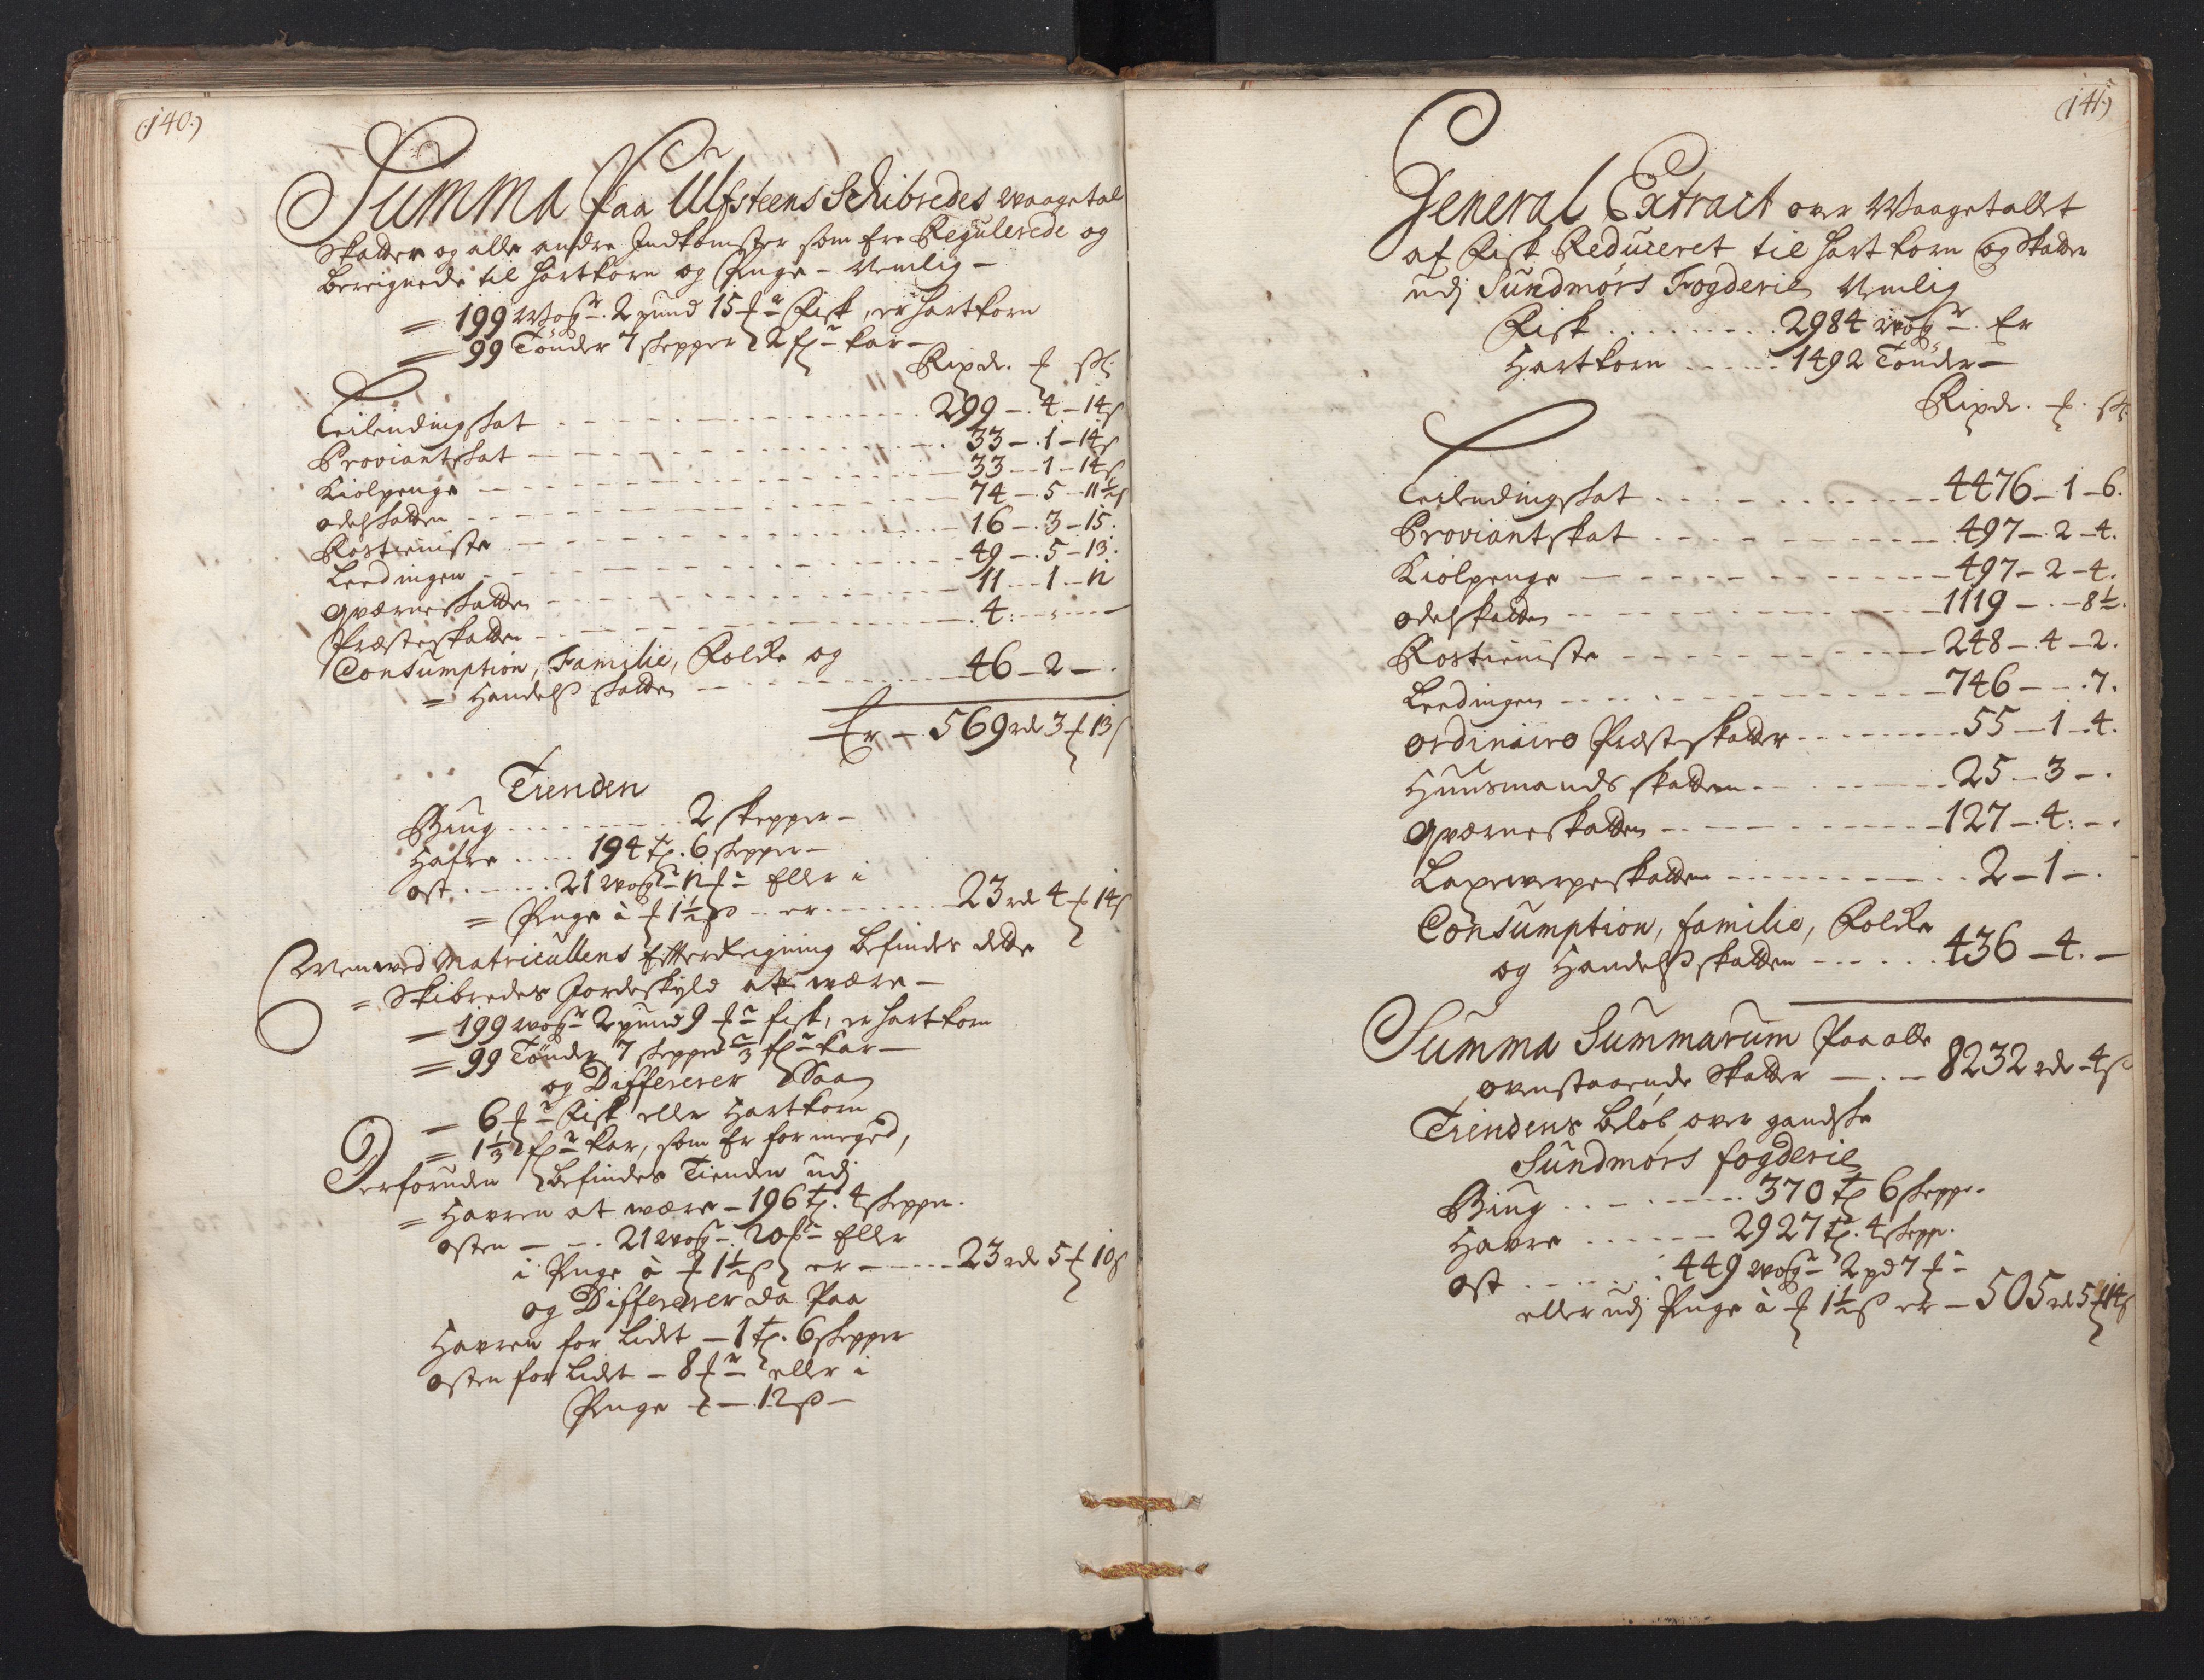 (:140:)
Summa Paa Ulfsteens Schibredes Waagetal
Skatter og alle andre Indkomster som Ere Regulerede og
beregnede til Hartkorn og Penge - Nemlig -
= 199 Wog 2 pund 15 Fisk, er Hartkorn
= 99 Tönder 7 skepper 2 kar -
Rixdr. sk:
Leilendingskat - 299 - 4 - 14
Proviantskat - 33 - 1 - 14
Kiolpenge - 33 - 1 - 14
Odelskatten - 74 - 5 - 11½
Rostieniste - 16 - 3 - 15.
Leedingen - 49 - 5 - 13.
Qværneskatten - 11 - 1 - 12
Præsteskatten - 4: - -
Consumption, Familie, Folke og
= Handels skatten - 46 - 2 - .
Er - 569 rd 3 13
Tienden
Biug - 2 skepper -
Hafre - 194 t. 6 skepper -
Ost - 21 Wog 12 Eller i
= Penge à 1½ er - 23 rd 4 14
Men ved Matricullens Efterreigning befindes dette
= Skibredes Jordeskyld at være -
= 199 Wog 2 pund 9 fisk, er Hartkorn
= 99 Tönder 7 skepper ⅔ kar -
og Differerer Saa
= 6 Fisk eller Hartkorn
= 1⅓ kar, som Er for meged,
Derforuden befindes Tienden udj
= Havren at være - 196 t. 4 skepper.
Osten - 21 Wog 20 Eller
i Penge à 1½ er - 23 rd 5 10
og Differerer da Paa
Havren for lidet - 1 t. 6 skepper
Osten for lidet - 8 eller i
Penge - 12 -
(141:)
General Extract over Waagetallet
af Fisk Reduceret til Hart korn og Skatter
udj Sundmørs Fogderie Nemlig
Fisk - 2984 Wog. Er
Hartkorn - 1492 Tönder -
Rixdr. sk:
Leilendingskat - 4476 - 1 - 6.
Proviantskat - 497 - 2 - 4.
Kiolpenge - 497 - 2 - 4.
Odelskatten - 1119 - . - 8½.
Rostieniste - 248 - 4 - 2.
Leedingen - 746 - - 7.
Ordinaire Præsteskatter - 55 - 1 - 4.
Huusmands skatten - 25 - 3 - .
Qværneskatten - 127 - 4: - .
Laxewerpeskatten - 2 - 1 - .
Consumption, familie, Folke
og Handels skatten - 436 - 4. -
Summa Summarum Paa alle
ovenstaaende Skatter - 8232 rd - 4
Tiendens beløb over gandske
Sundmørs fogderie
Biug - 370 t 6 skepp.
Havre - 2927 t. 4 skepp.
Ost - 449 Wog 2 pd 7
eller udj Penge à 1½ er - 505 rd 5 14